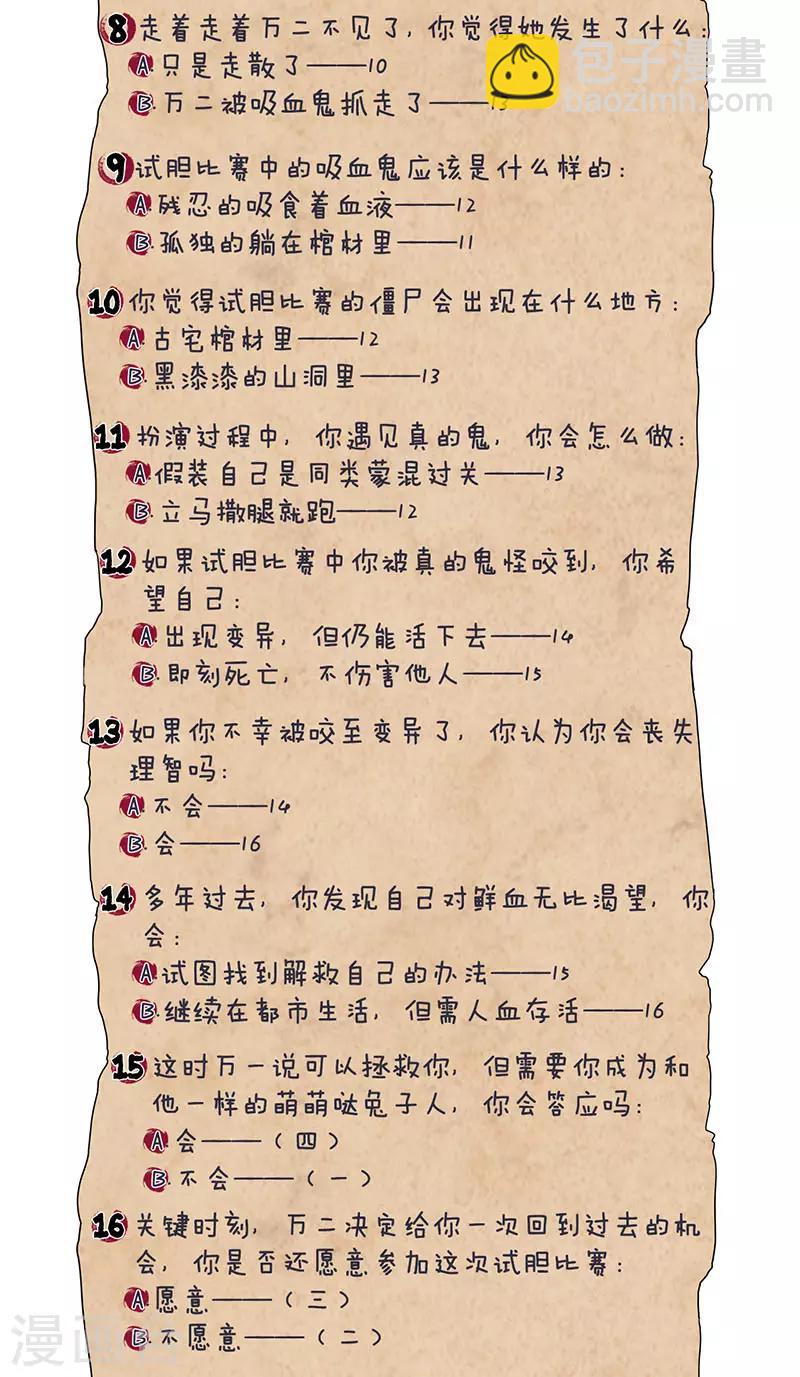 8 走着走着万二不见了，你觉得她发生了什么：
A. 只是走散了——10
B. 万二被吸血鬼抓走了——13
包子漫畫
baozimh.com
9 试胆比赛中的吸血鬼应该是什么样的：
A. 残忍的吸食着血液——12
B. 孤独的躺在棺材里——11
10 你觉得试胆比赛的僵尸会出现在什么地方：
A. 古宅棺材里——12
B. 黑漆漆的山洞里——13
11 扮演过程中，你遇见真的鬼，你会怎么做：
A. 假装自己是同类蒙混过关——13
B. 立马撒腿就跑——12
12 如果试胆比赛中你被真的鬼怪咬到，你希
望自己：
A. 出现变异，但仍能活下去——14
B. 即刻死亡，不伤害他人——15
13 如果你不幸被咬至变异了，你认为你会丧失
理智吗：
A. 不会——14
B. 会——16
14 多年过去，你发现自己对鲜血无比渴望，你
会：
A. 试图找到解救自己的办法——15
B. 继续在都市生活，但需人血存活——16
15 这时万一说可以拯救你，但需要你成为和
他一样的萌萌哒兔子人，你会答应吗：
A. 会——（四）
B. 不会——（一）
16 关键时刻，万二决定给你一次回到过去的机
会，你是否还愿意参加这次试胆比赛：
A. 愿意——（三）
B. 不愿意——（二）
漫画台